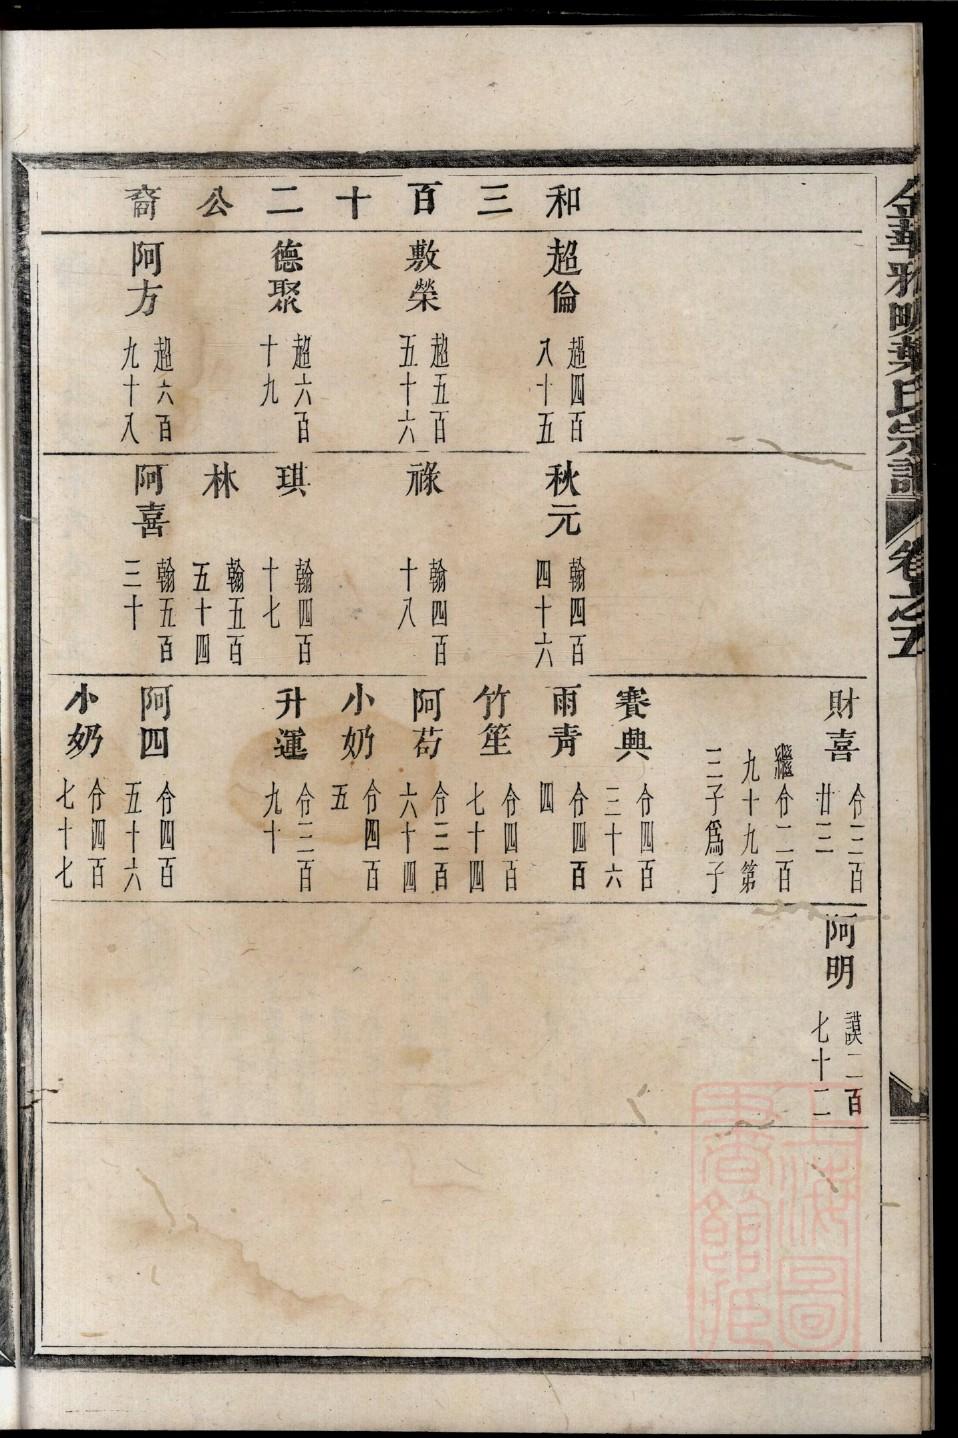 金華雅畈葉氏宗譜 卷之五
和三百十二公裔
超倫 超四百八十五
敷榮 超五百五十六
德聚 超六百十九
阿方 超六百九十八
秋元 翰四百四十六
祿 翰四百十八
琪 翰四百十七
林 翰五百五十四
阿喜 翰五百三十
財喜 令三百廿三
繼令二百九十九第三子爲子
賽興 令四百三十六
雨青 令四百四
竹笙 令四百七十四
阿苟 令三百六十四
小奶 令四百五
升運 令三百九十
阿四 令四百五十六
小奶 令四百七十七
阿明 謨二百七十二
上海圖書館藏